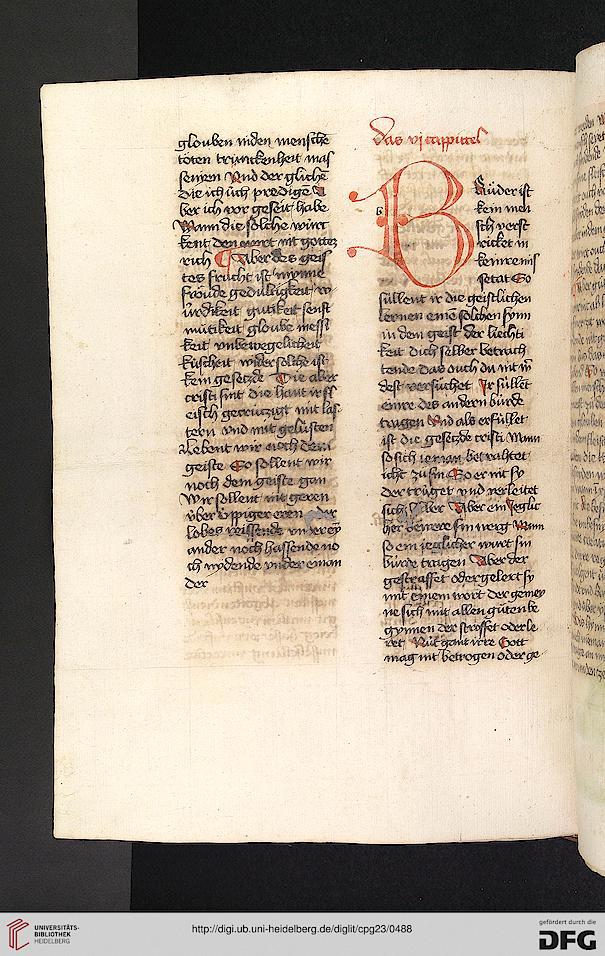 glouben niden mensche
töten trunckenheit was
seinen Vnd der gliche
die ich uch predige A
ber ich vor geseit habe
Wann die solche würc
kent den enwrt nit gottez
rich Aber des geis
tes frucht ist mynne
fröude gedultigkeit
gutikeit senft
mütikeit gloube messi
keit vnbewegelicheit
kuscheit wider solche ist
kein gesetzde Die aber
cristi sint die hant ir fl
eisch getruczigt mit las
tern vnd mit gelüsten
Lebent wir noch dem
geiste So sollent wir
noch dem geiste gan
Wir sollent nit geren
uber üppiger eren
lobes reissende vnderey
ander noch hassende no
ch nydende vnder einan
der
das vj cappittel
Brüder ist
kein men
sch verst
ricket in
keinre mis
setat So
süllent ir die geistlichen
lernen eine solchen synn
in dem geist der liechti
keit dich selber betrach
tende das ouch du nit
dest versuchet Ir süllet
einre des andern bürde
tragen Vnd als erfüllet
ist die gesetzde cristi Wann
so sich ieman betrahtet
icht zu sin So er nit sy
der trüget vnd verleitet
sich selber Aber ein Jeglic
her bewere sin werg Wann
so ein jeglicher wurt sin
bürde tragen Aber der
gestraffet oder gelert sy
mit einem wort der gemey
ne sich mit allen guten be
gynnen der stroffet oder le
ret Nüt gant irre Gott
mag nit betrogen oder ge
UNIVERSITÄTS-
BIBLIOTHEK
HEIDELBERG
http://digi.ub.uni-heidelberg.de/diglit/cpg23/0488
gefördert durch die
DFG